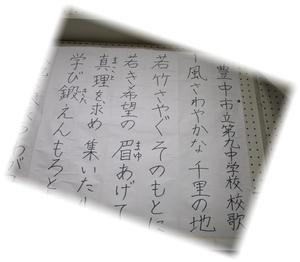 豊中市立第九中学校校歌
一風さわやかな 千里の地
若竹さやぐ そのもとに
若き希望の 眉あげて
まゆ
真理を求め 集いたり
まこと
学び鍛えんもろと
きた